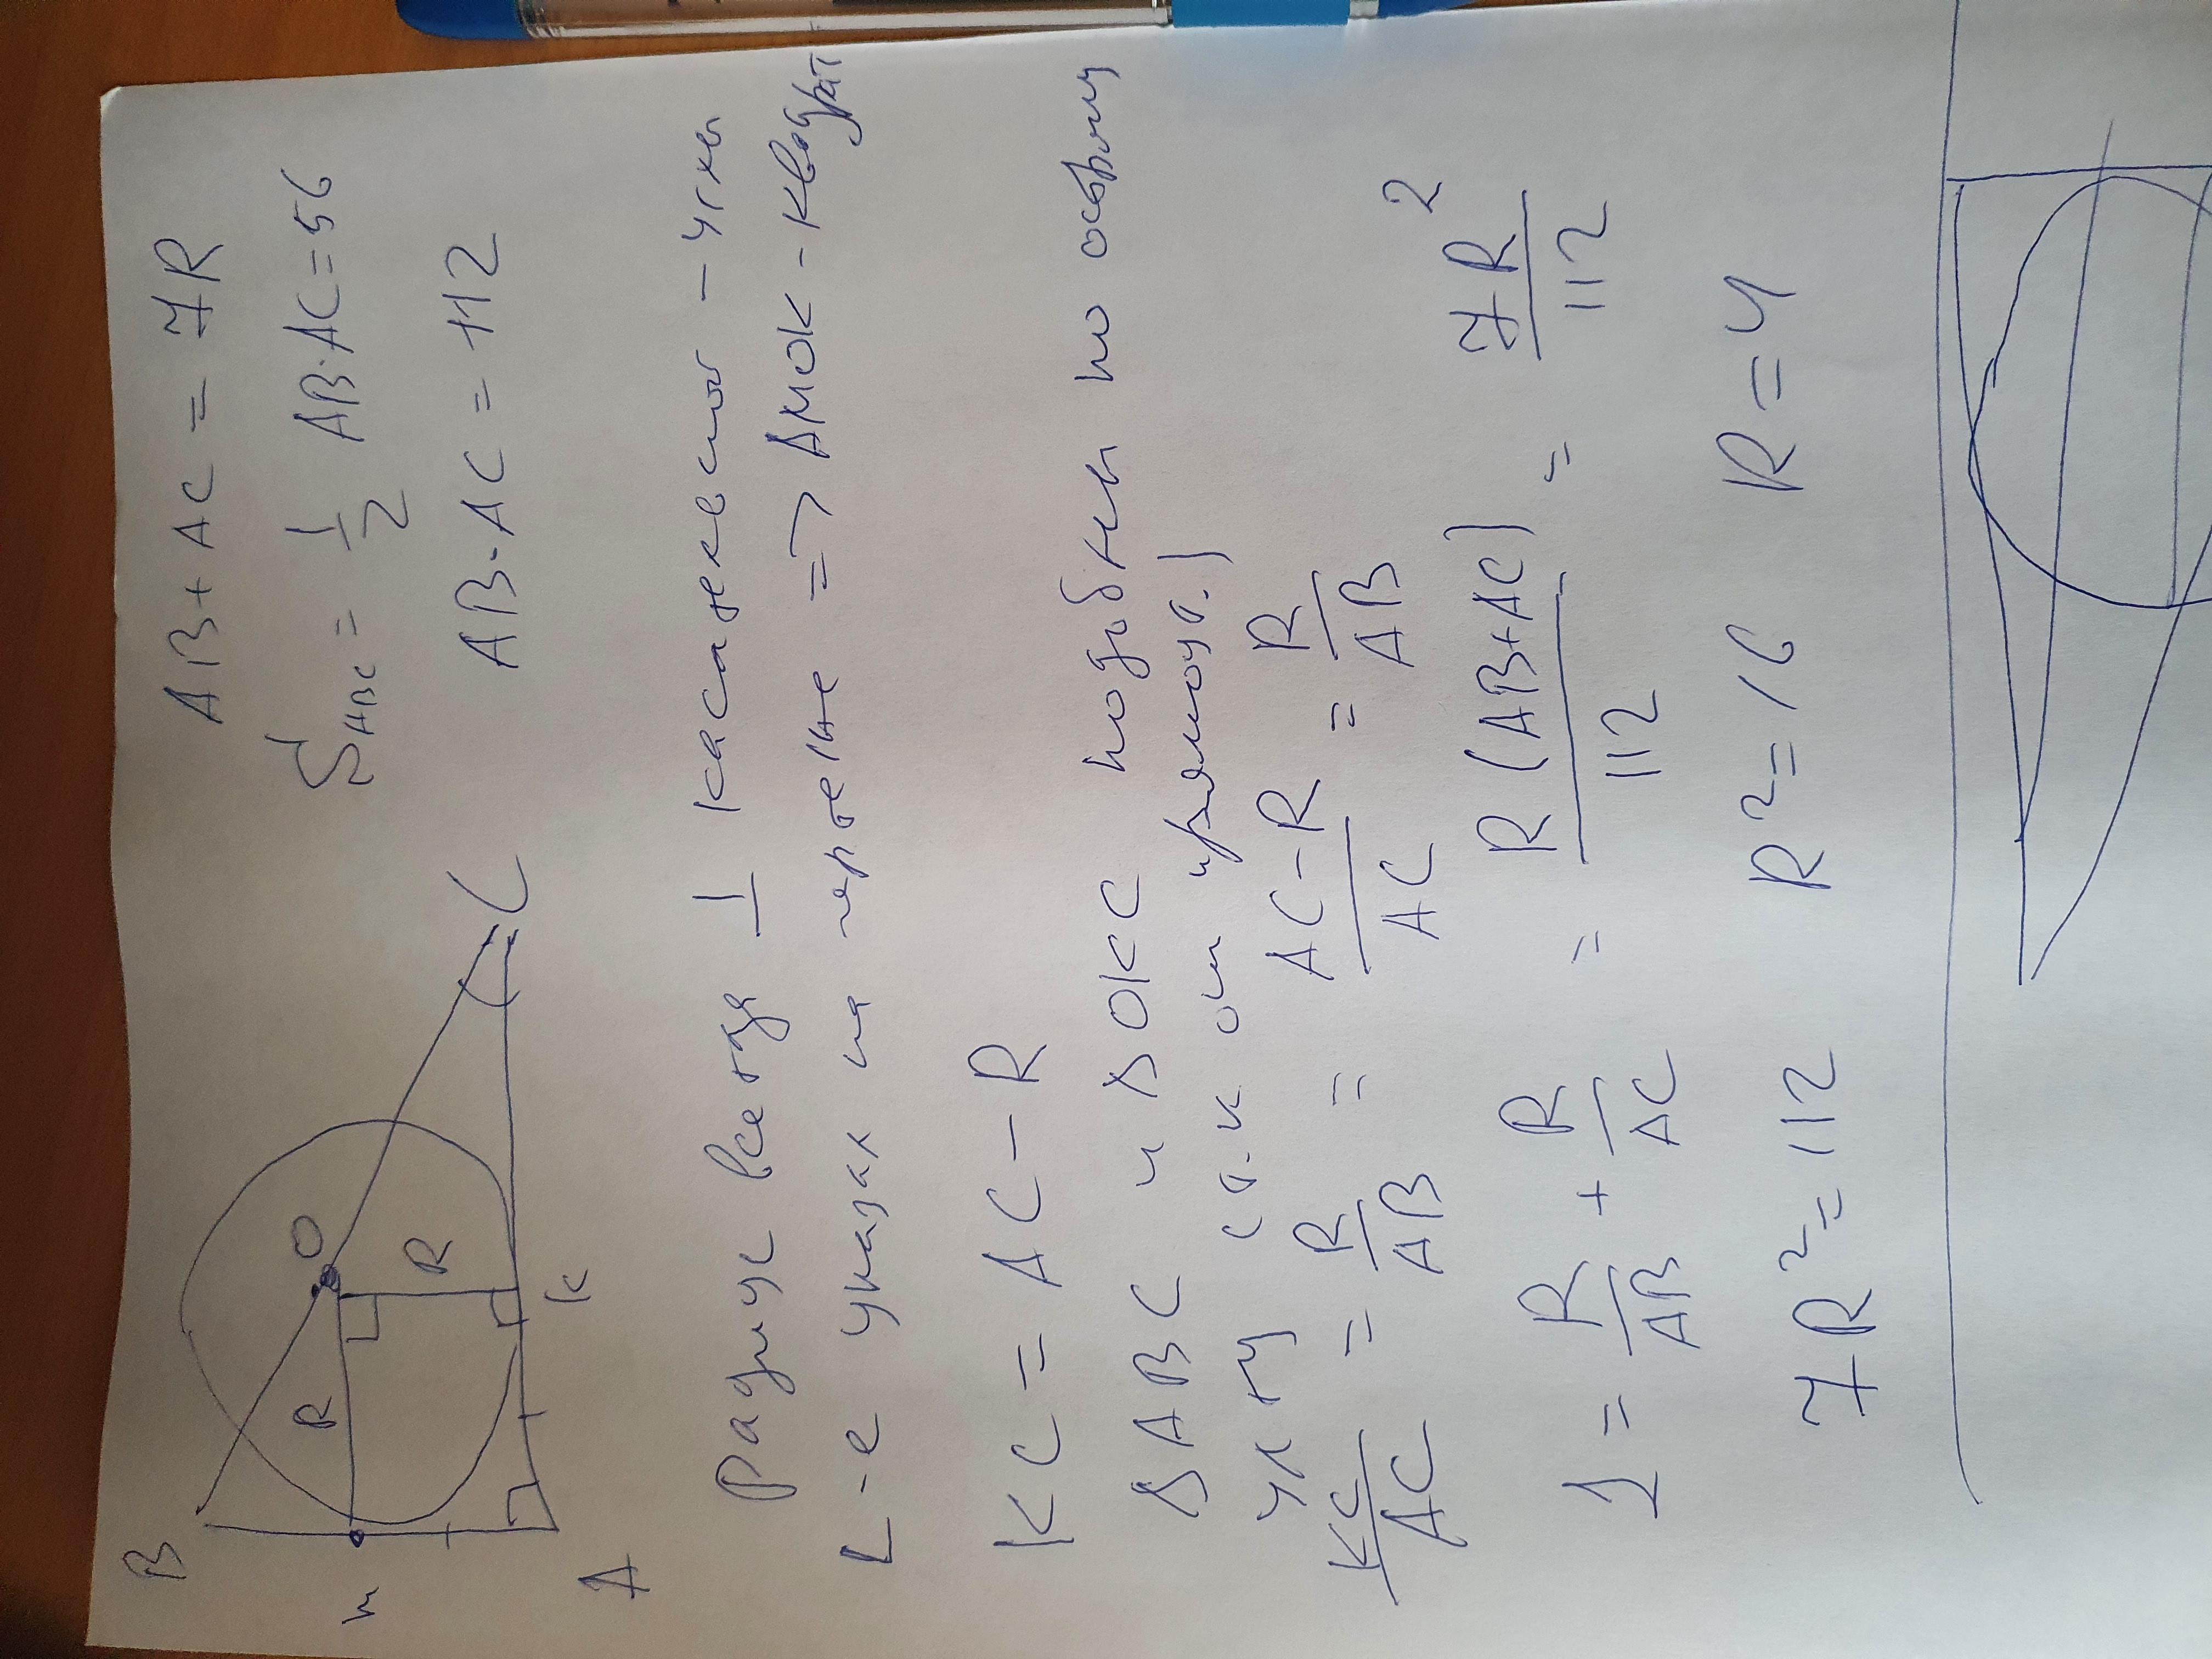 B
M
R
O
R
A
K
C
AB + AC = 7R
S ABC = 1/2 AB·AC = 56
AB·AC = 112
Радиус всегда ⊥ касательной - углы
L-е указах на чертеже => AMOK - квадрат
KC = AC - R
ΔABC и ΔOKC подобны по острому
углу (т.к они прямоуг.)
KC/AC = R/AB = AC-R/AC = R/AB
1 = R/AB + R/AC = R(AB+AC)/112 = 7R²/112
7R² = 112 R² = 16 R = 4